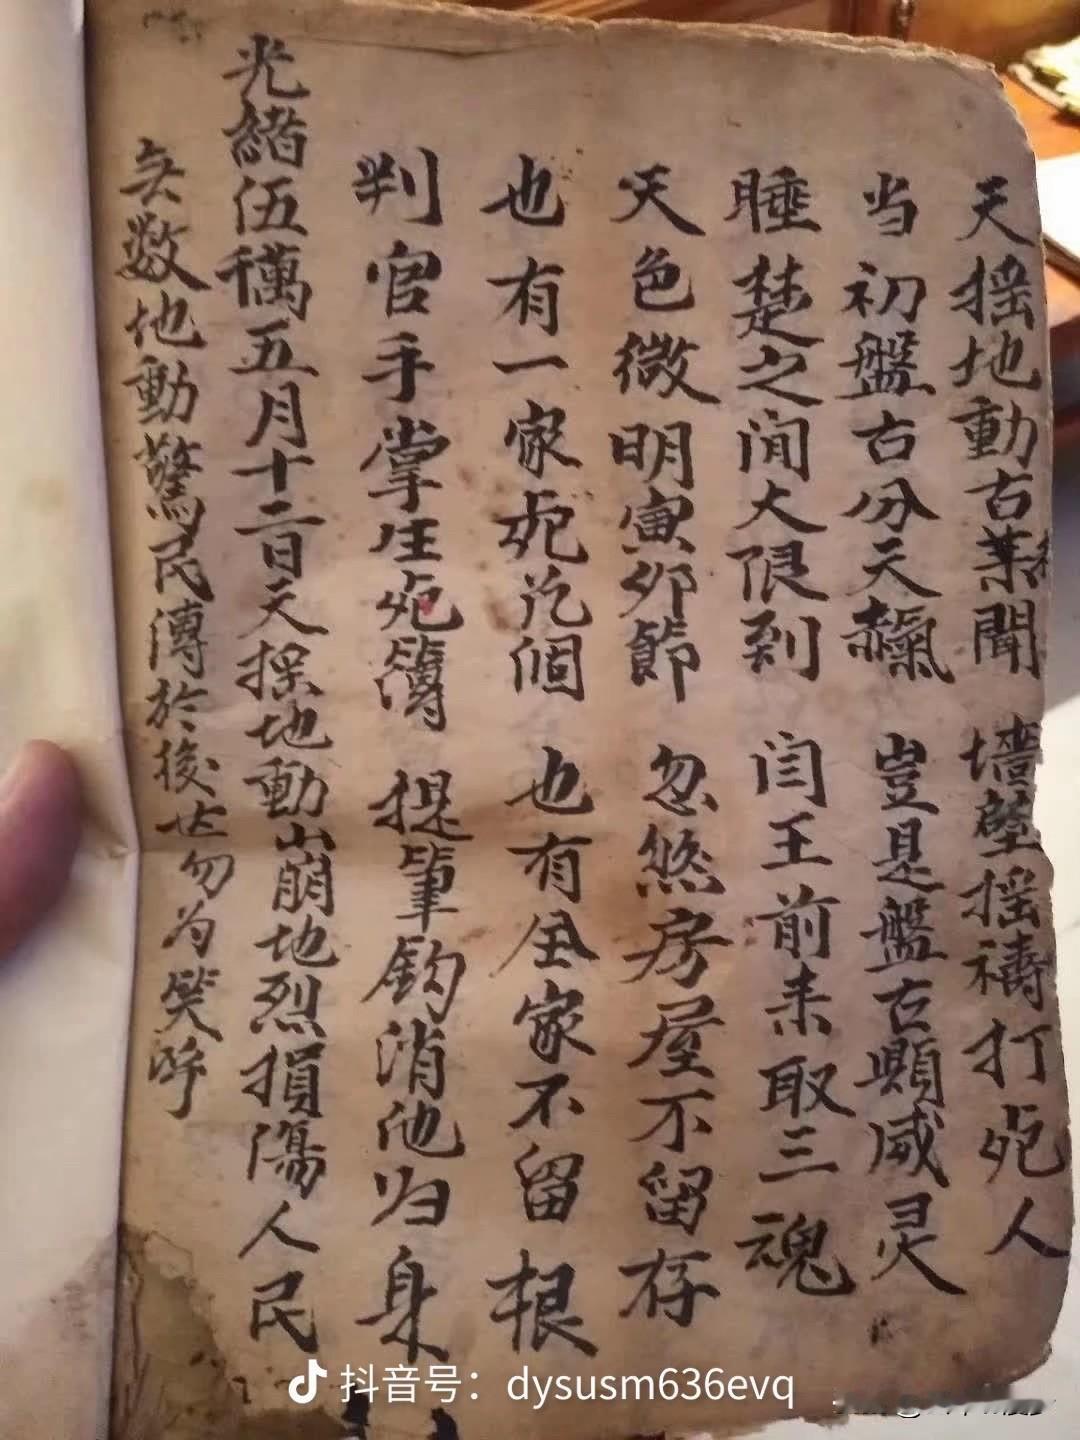 天摇地動古葉聞 墻壁摇禱打死人
当初盤古分天 豈是盤古顕威灵
睡楚之间大限到 闫王前来取三魂
天色微明寅卯節 忽悠房屋不留存
也有一家死 個 也有全家不留根
判官手掌生死簿 提筆鈎消他归身
光緒伍 五月十二日天摇地動山崩地烈損傷人民
無数地動驚民傳於後世勿为笑呼
抖音号：dysusm636evq